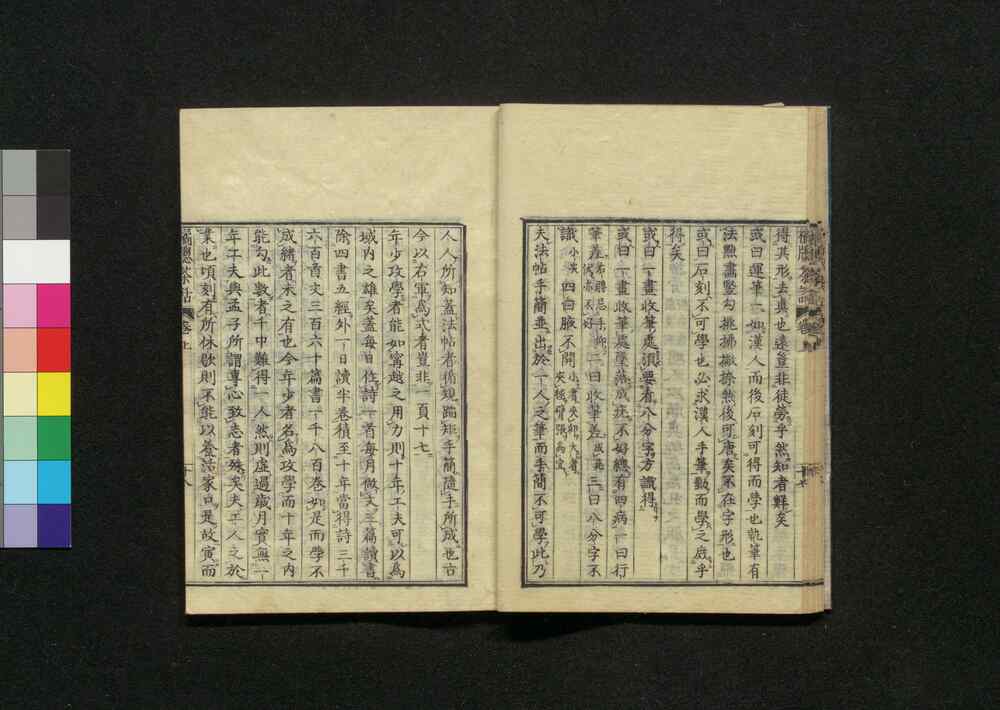 得其形去真也遠豈非徒勞乎然知者鮮矣
或曰運筆一如漢人而後石刻可得而學也執筆有
法點畫豎勾挑拂撇捺然後可唐矣不在字形也
或曰石刻不可學也必求漢人手筆動而學之庶乎
得矣
或曰一畫收筆處須要有八分字方識得
或曰一畫收筆處墜落成疣不好總有四病一曰行
筆差二曰收筆差三曰八分字不
識四曰腋不開
夫法帖手簡並出於一人之筆而手簡不可學此乃
十七
人人所知蓋法帖者循規蹈矩手簡隨手所成也古
今以右軍爲式者豈非一頁十七
年少攻學者能如甯越之用力則十年工夫可以爲
域內之雄矣蓋每日作詩一首每月做文三篇讀書
除四書五經外一日讀半卷積至十年當得詩三千
六百首文三百六十篇書一千八百卷如是而學不
成緒者未之有也今年少者名爲攻學而十年之內
能勾此數者千中難得一人然則虛過歲月實無一
年工夫與孟子所謂專心致志者殊矣夫工人之於
業也頃刻有所休歇則不能以養活家口是故寅而
橘窻茶話
卷上
十八